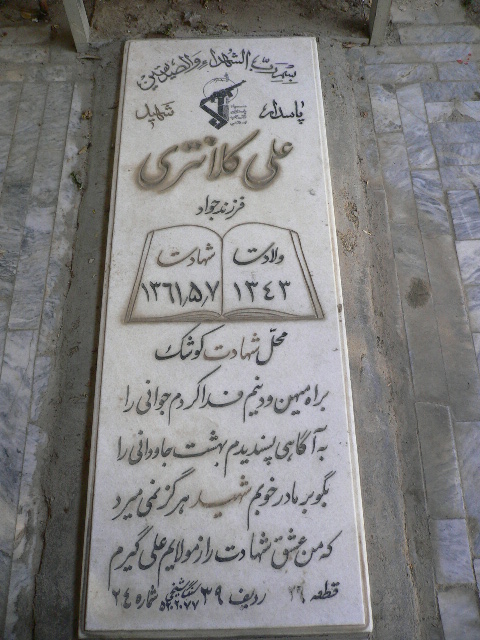 بسم رب الشهداء والصدیقین
پاسدار شهید
علی کلانتری
فرزند جواد
ولادت ۱۳۴۳
شهادت ۱۳۶۱٫۵٫۷
محلّ شهادت کوشک
براه میهن و دینم فدا کردم جوانی را
به آگاهی پسندیدم بهشت جاودانی را
بگو بر مادر خوبم شهید هرگز نمی میرد
که من عشق شهادت را ز مولایم علی گیرم
قطعه ۲۶ ردیف ۳۹ شماره ۲۴